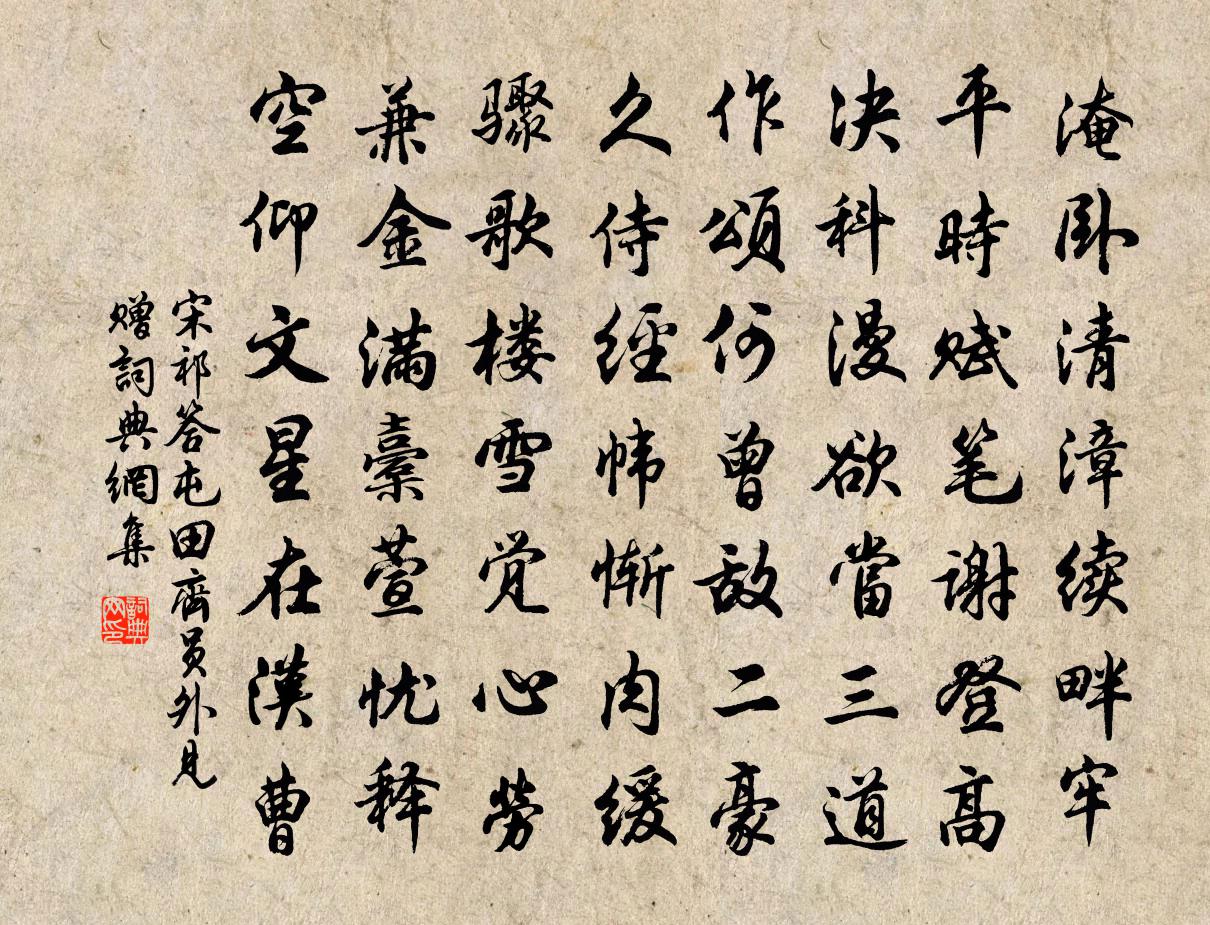 淹卧清漳续畔牢
平時赋笔谢登高
决科漫欲當三道
作頌何曾敌二豪
久侍經帏惭肉缓
骤歌楼雪觉心劳
兼金满橐萱忧释
空仰文星在漢曹
宋祁答屯田齊员外見
赠詞典網集
詞典